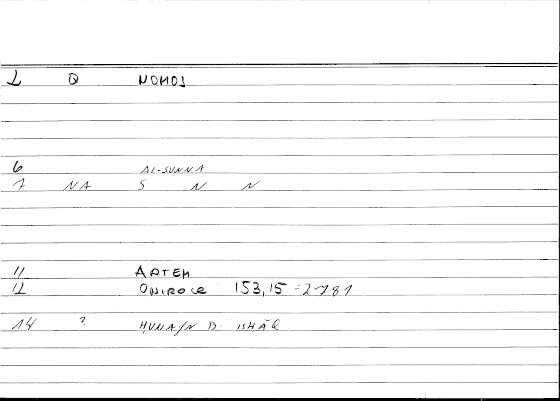 1 Q NOMOS
6 AL-SUNNA
7 NA S N N
11 ARTEM
12 ONIROCR 153,15 = 2781
14 ? HUNAYN B. ISHĀQ